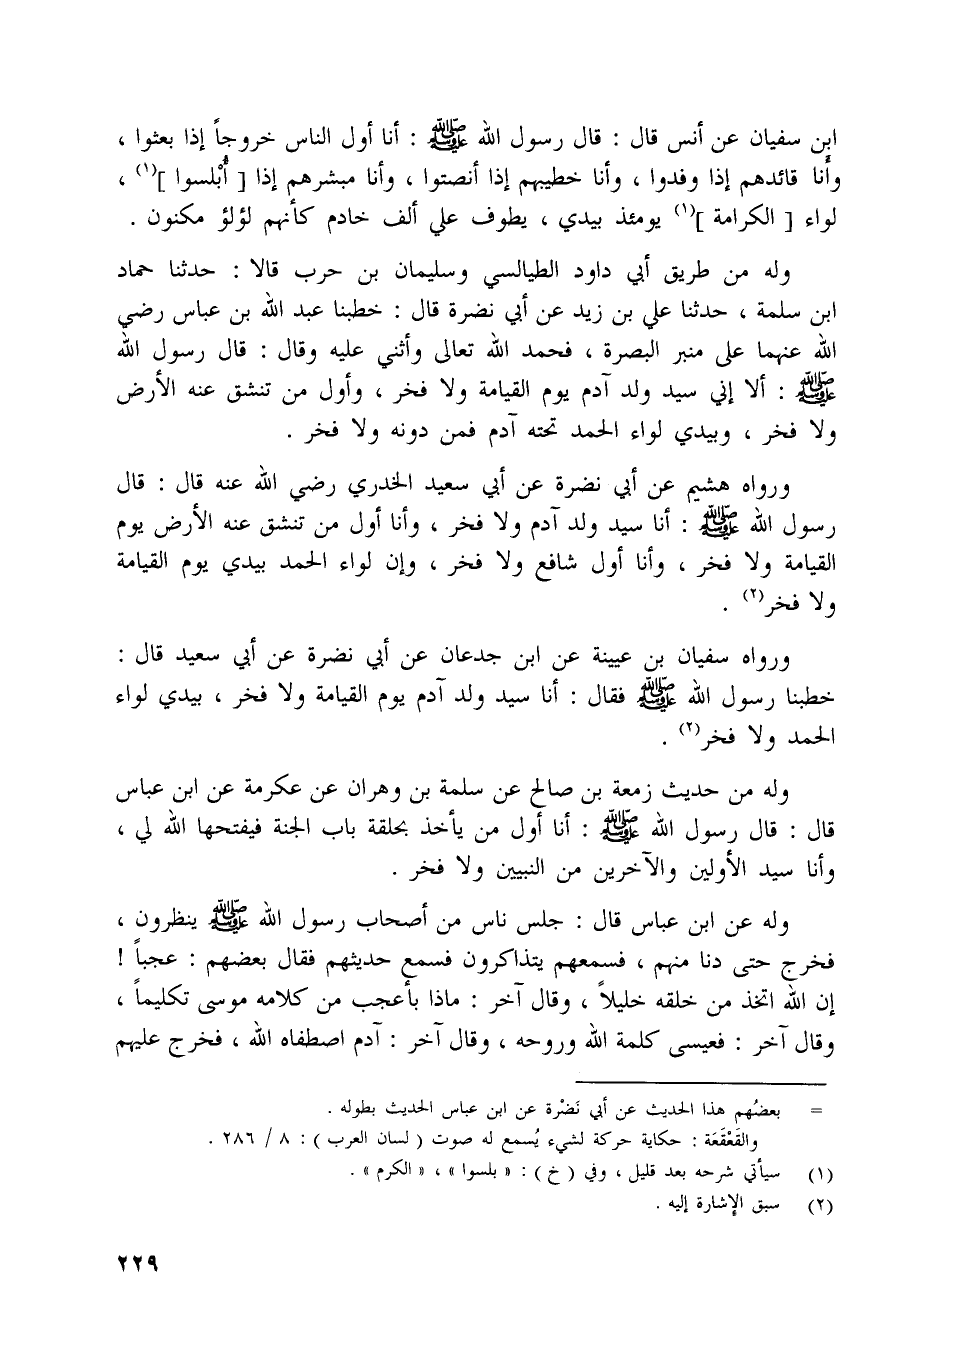 ابن سفيان عن أنس قال : قال رسول الله ﷺ : أنا أول الناس خروجاً إذا بعثوا ،
وأنا قائدهم إذا وفدوا ، وأنا خطيبهم إذا أنصتوا ، وأنا مبشرهم إذا [ أُبْلسوا ](١) ،
لواء [ الكرامة ](١) يومئذ بيدي ، يطوف علي ألف خادم كأنهم لؤلؤ مكنون .
وله من طريق أبي داود الطيالسي وسليمان بن حرب قالا : حدثنا حماد
ابن سلمة ، حدثنا علي بن زيد عن أبي نضرة قال : خطبنا عبد الله بن عباس رضي
الله عنهما على منبر البصرة ، فحمد الله تعالى وأثني عليه وقال : قال رسول الله
ﷺ : ألا إني سيد ولد آدم يوم القيامة ولا فخر ، وأول من تنشق عنه الأرض
ولا فخر ، وبيدي لواء الحمد تحته آدم فمن دونه ولا فخر .
ورواه هشيم عن أبي نضرة عن أبي سعيد الخدري رضي الله عنه قال : قال
رسول الله ﷺ : أنا سيد ولد آدم ولا فخر ، وأنا أول من تنشق عنه الأرض يوم
القيامة ولا فخر ، وأنا أول شافع ولا فخر ، وإن لواء الحمد بيدي يوم القيامة
ولا فخر(٢) .
ورواه سفيان بن عيينة عن ابن جدعان عن أبي نضرة عن أبي سعيد قال :
خطبنا رسول الله ﷺ فقال : أنا سيد ولد آدم يوم القيامة ولا فخر ، بيدي لواء
الحمد ولا فخر(٢) .
وله من حديث زمعة بن صالح عن سلمة بن وهران عن عكرمة عن ابن عباس
قال : قال رسول الله ﷺ : أنا أول من يأخذ بحلقة باب الجنة فيفتحها الله لي ،
وأنا سيد الأولين والآخرين من النبيين ولا فخر .
وله عن ابن عباس قال : جلس ناس من أصحاب رسول الله ﷺ ينظرون ،
فخرج حتى دنا منهم ، فسمعهم يتذاكرون فسمع حديثهم فقال بعضهم : عجباً !
إن الله اتخذ من خلقه خليلاً ، وقال آخر : ماذا بأعجب من كلامه موسى تكليماً ،
وقال آخر : فعيسى كلمة الله وروحه ، وقال آخر : آدم اصطفاه الله ، فخرج عليهم
= بعضُهم هذا الحديث عن أبي نَضْرة عن ابن عباس الحديث بطوله .
والقَعْقَعَة : حكاية حركة لشيء يُسمع له صوت ( لسان العرب ) : ٨ / ٢٨٦ .
(١) سيأتي شرحه بعد قليل ، وفي ( خ ) : « بلسوا » ، « الكرم » .
(٢) سبق الإشارة إليه .
٢٢٩